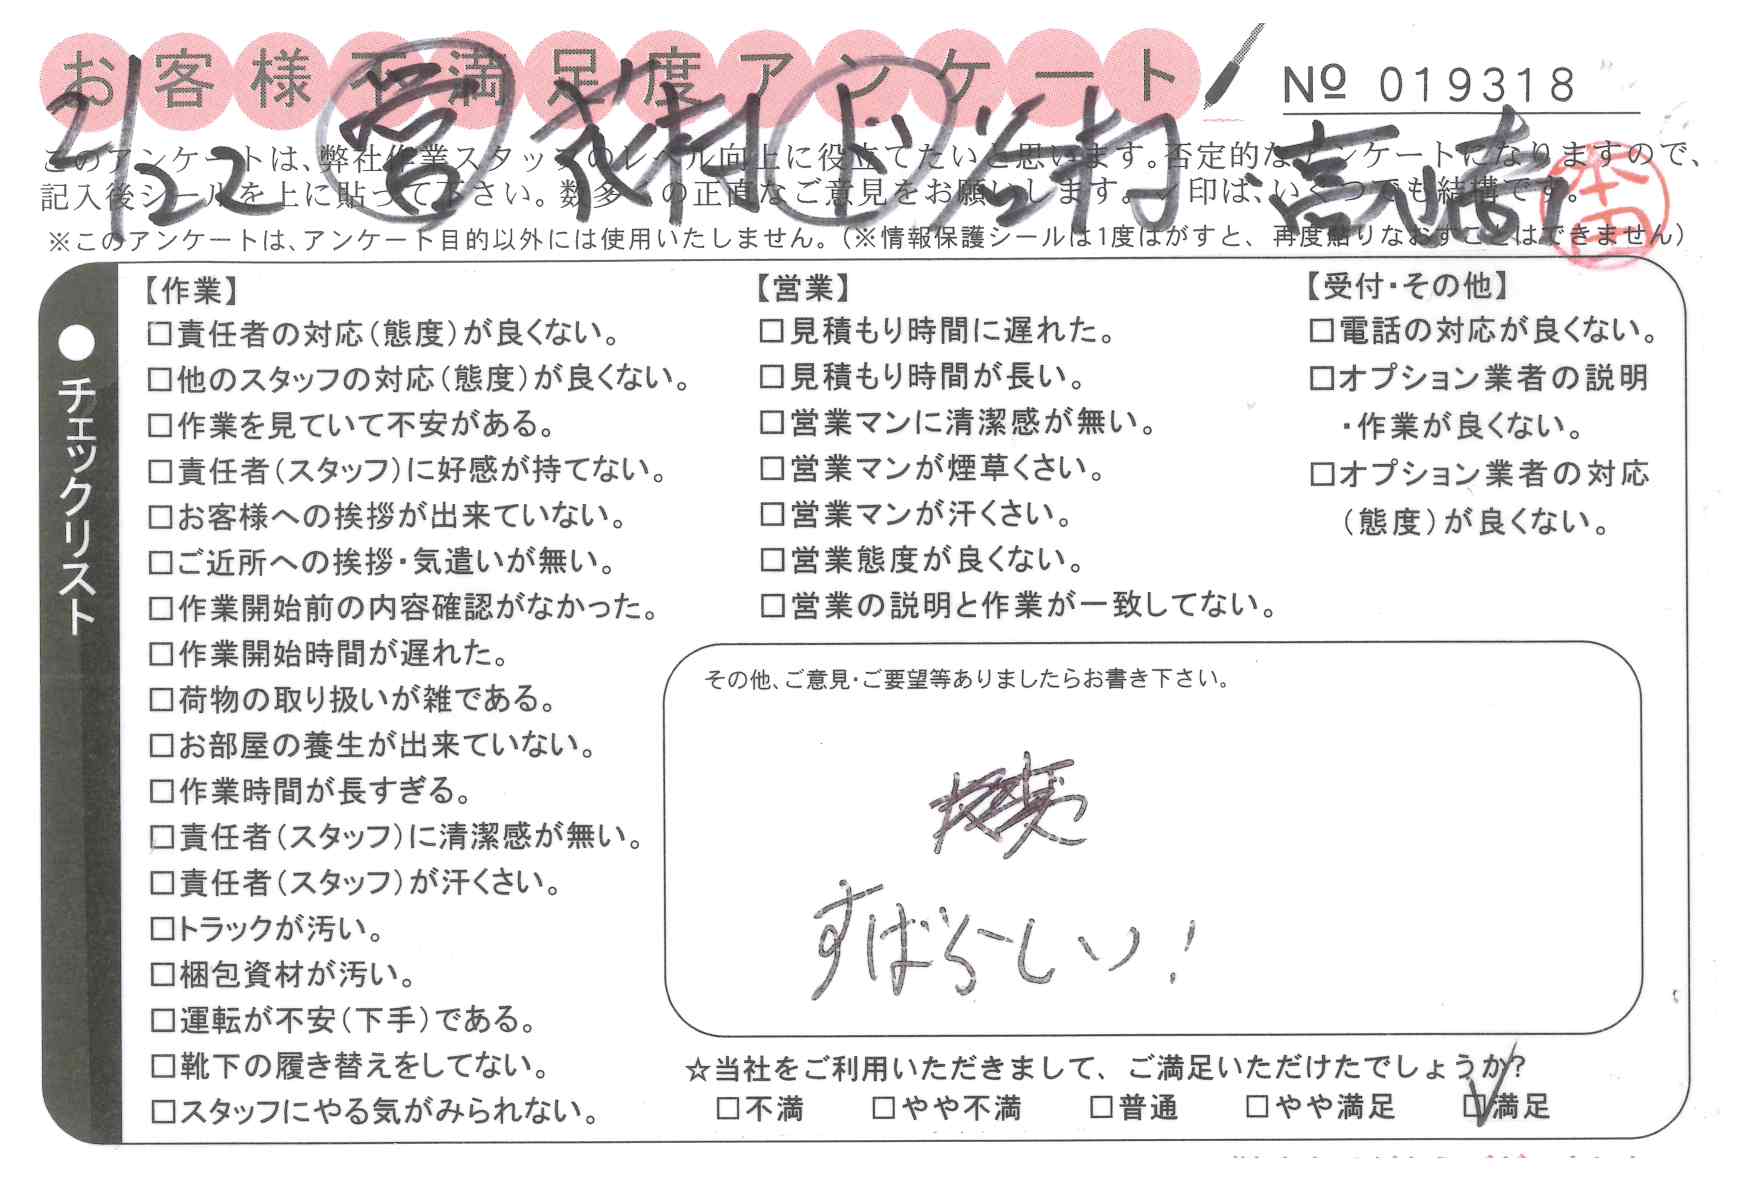 お客様不満足度アンケート
№ 019318
2/22 営 木村 上 谷村、高崎
本田
このアンケートは、弊社作業スタッフのレベル向上に役立てたいと思います。否定的なアンケートになりますので、
記入後シールを上に貼って下さい。数多くの正直なご意見をお願いします。✓印は、いくつでも結構です。
※このアンケートは、アンケート目的以外には使用いたしません。(※情報保護シールは1度はがすと、再度貼りなおすことはできません)
●チェックリスト
【作業】
□責任者の対応(態度)が良くない。
□他のスタッフの対応(態度)が良くない。
□作業を見ていて不安がある。
□責任者(スタッフ)に好感が持てない。
□お客様への挨拶が出来ていない。
□ご近所への挨拶・気遣いが無い。
□作業開始前の内容確認がなかった。
□作業開始時間が遅れた。
□荷物の取り扱いが雑である。
□お部屋の養生が出来ていない。
□作業時間が長すぎる。
□責任者(スタッフ)に清潔感が無い。
□責任者(スタッフ)が汗くさい。
□トラックが汚い。
□梱包資材が汚い。
□運転が不安(下手)である。
□靴下の履き替えをしてない。
□スタッフにやる気がみられない。
【営業】
□見積もり時間に遅れた。
□見積もり時間が長い。
□営業マンに清潔感が無い。
□営業マンが煙草くさい。
□営業マンが汗くさい。
□営業態度が良くない。
□営業の説明と作業が一致してない。
【受付・その他】
□電話の対応が良くない。
□オプション業者の説明
・作業が良くない。
□オプション業者の対応
(態度)が良くない。
その他、ご意見・ご要望等ありましたらお書き下さい。
すばらしい!
☆当社をご利用いただきまして、ご満足いただけたでしょうか?
□不満 □やや不満 □普通 □やや満足 ☑満足